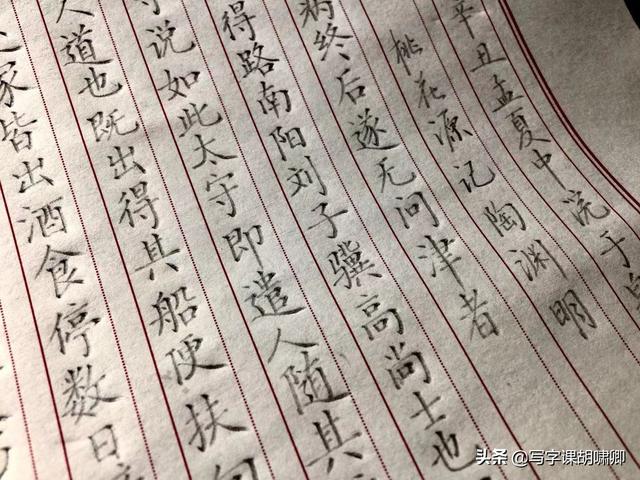 家皆出酒食停数日
人道也既出得其船便扶向
守说如此太守即遣人随其
得路南阳刘子骥高尚士也
病终后遂无问津者
桃花源记 陶渊明
辛丑孟夏中浣于
头条 @写字课胡啸卿